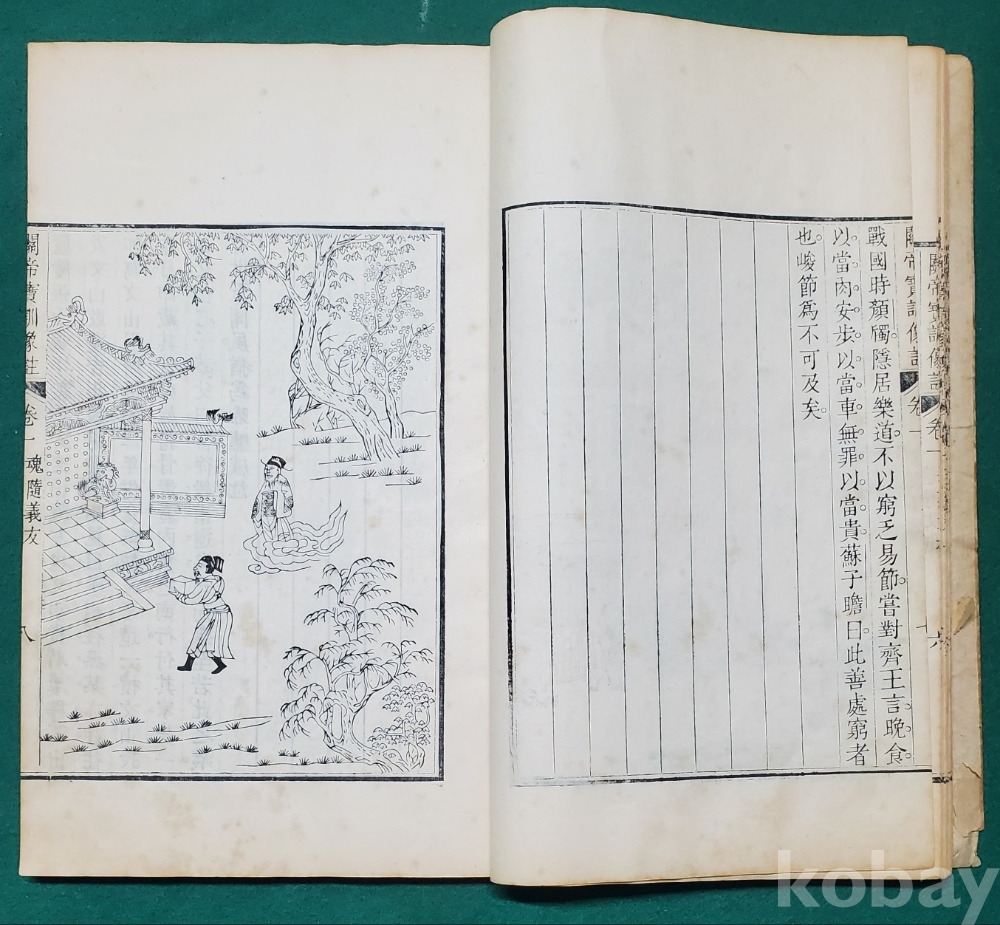 關帝寶訓像註
卷一
戰國時顏斶隱居樂道不以窮乏易節嘗對齊王言晚食
以當肉安步以當車無罪以當貴蘇子瞻曰此善處窮者
也峻節爲不可及矣
關帝寶訓像註
卷一
魂隨義友
八
kobay